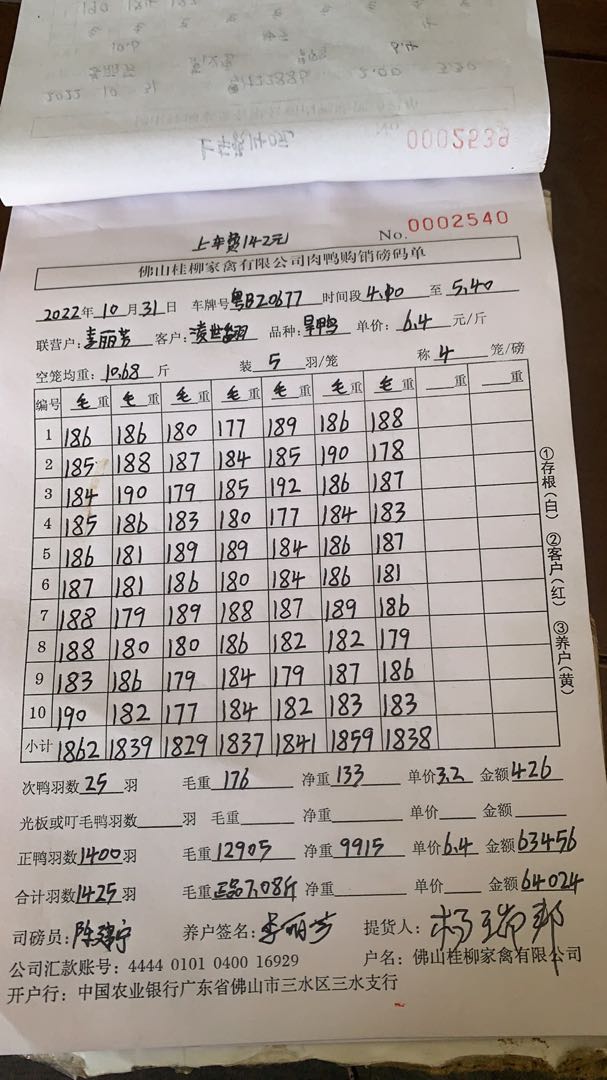 0002539
上车费142元
No. 0002540
佛山桂柳家禽有限公司肉鸭购销磅码单
2022年10月31日 车牌号粤BZ0677 时间段4.40至5.40
联营户:李丽芳 客户:凌世 品种:旱鸭 单价:6.4元/斤
空笼均重:10.68斤 装5羽/笼 称4笼/磅
编号 毛重 毛重 毛重 毛重 毛重 毛重 毛重 重 重
1 186 186 180 177 189 186 188
2 185 188 187 184 185 190 178
3 184 190 179 185 192 186 187
4 185 186 183 180 177 184 183
5 186 181 189 189 184 186 187
6 187 181 186 180 184 186 181
7 188 179 189 188 187 189 186
8 188 180 180 186 182 182 179
9 183 186 179 184 179 187 186
10 190 182 177 184 182 183 183
小计 1862 1839 1829 1837 1841 1859 1838
①存根(白) ②客户(红) ③养户(黄)
次鸭羽数25羽 毛重176 净重133 单价3.2 金额426
光板或叮毛鸭羽数 羽 毛重 净重 单价 金额
正鸭羽数1400羽 毛重12905 净重9915 单价6.4 金额63456
合计羽数1425羽 毛重正品7.08斤 净重 单价 金额64024
司磅员: 养户签名:李丽芳 提货人:杨瑞邦
公司汇款账号:4444 0101 0400 16929 户名:佛山桂柳家禽有限公司
开户行:中国农业银行广东省佛山市三水区三水支行